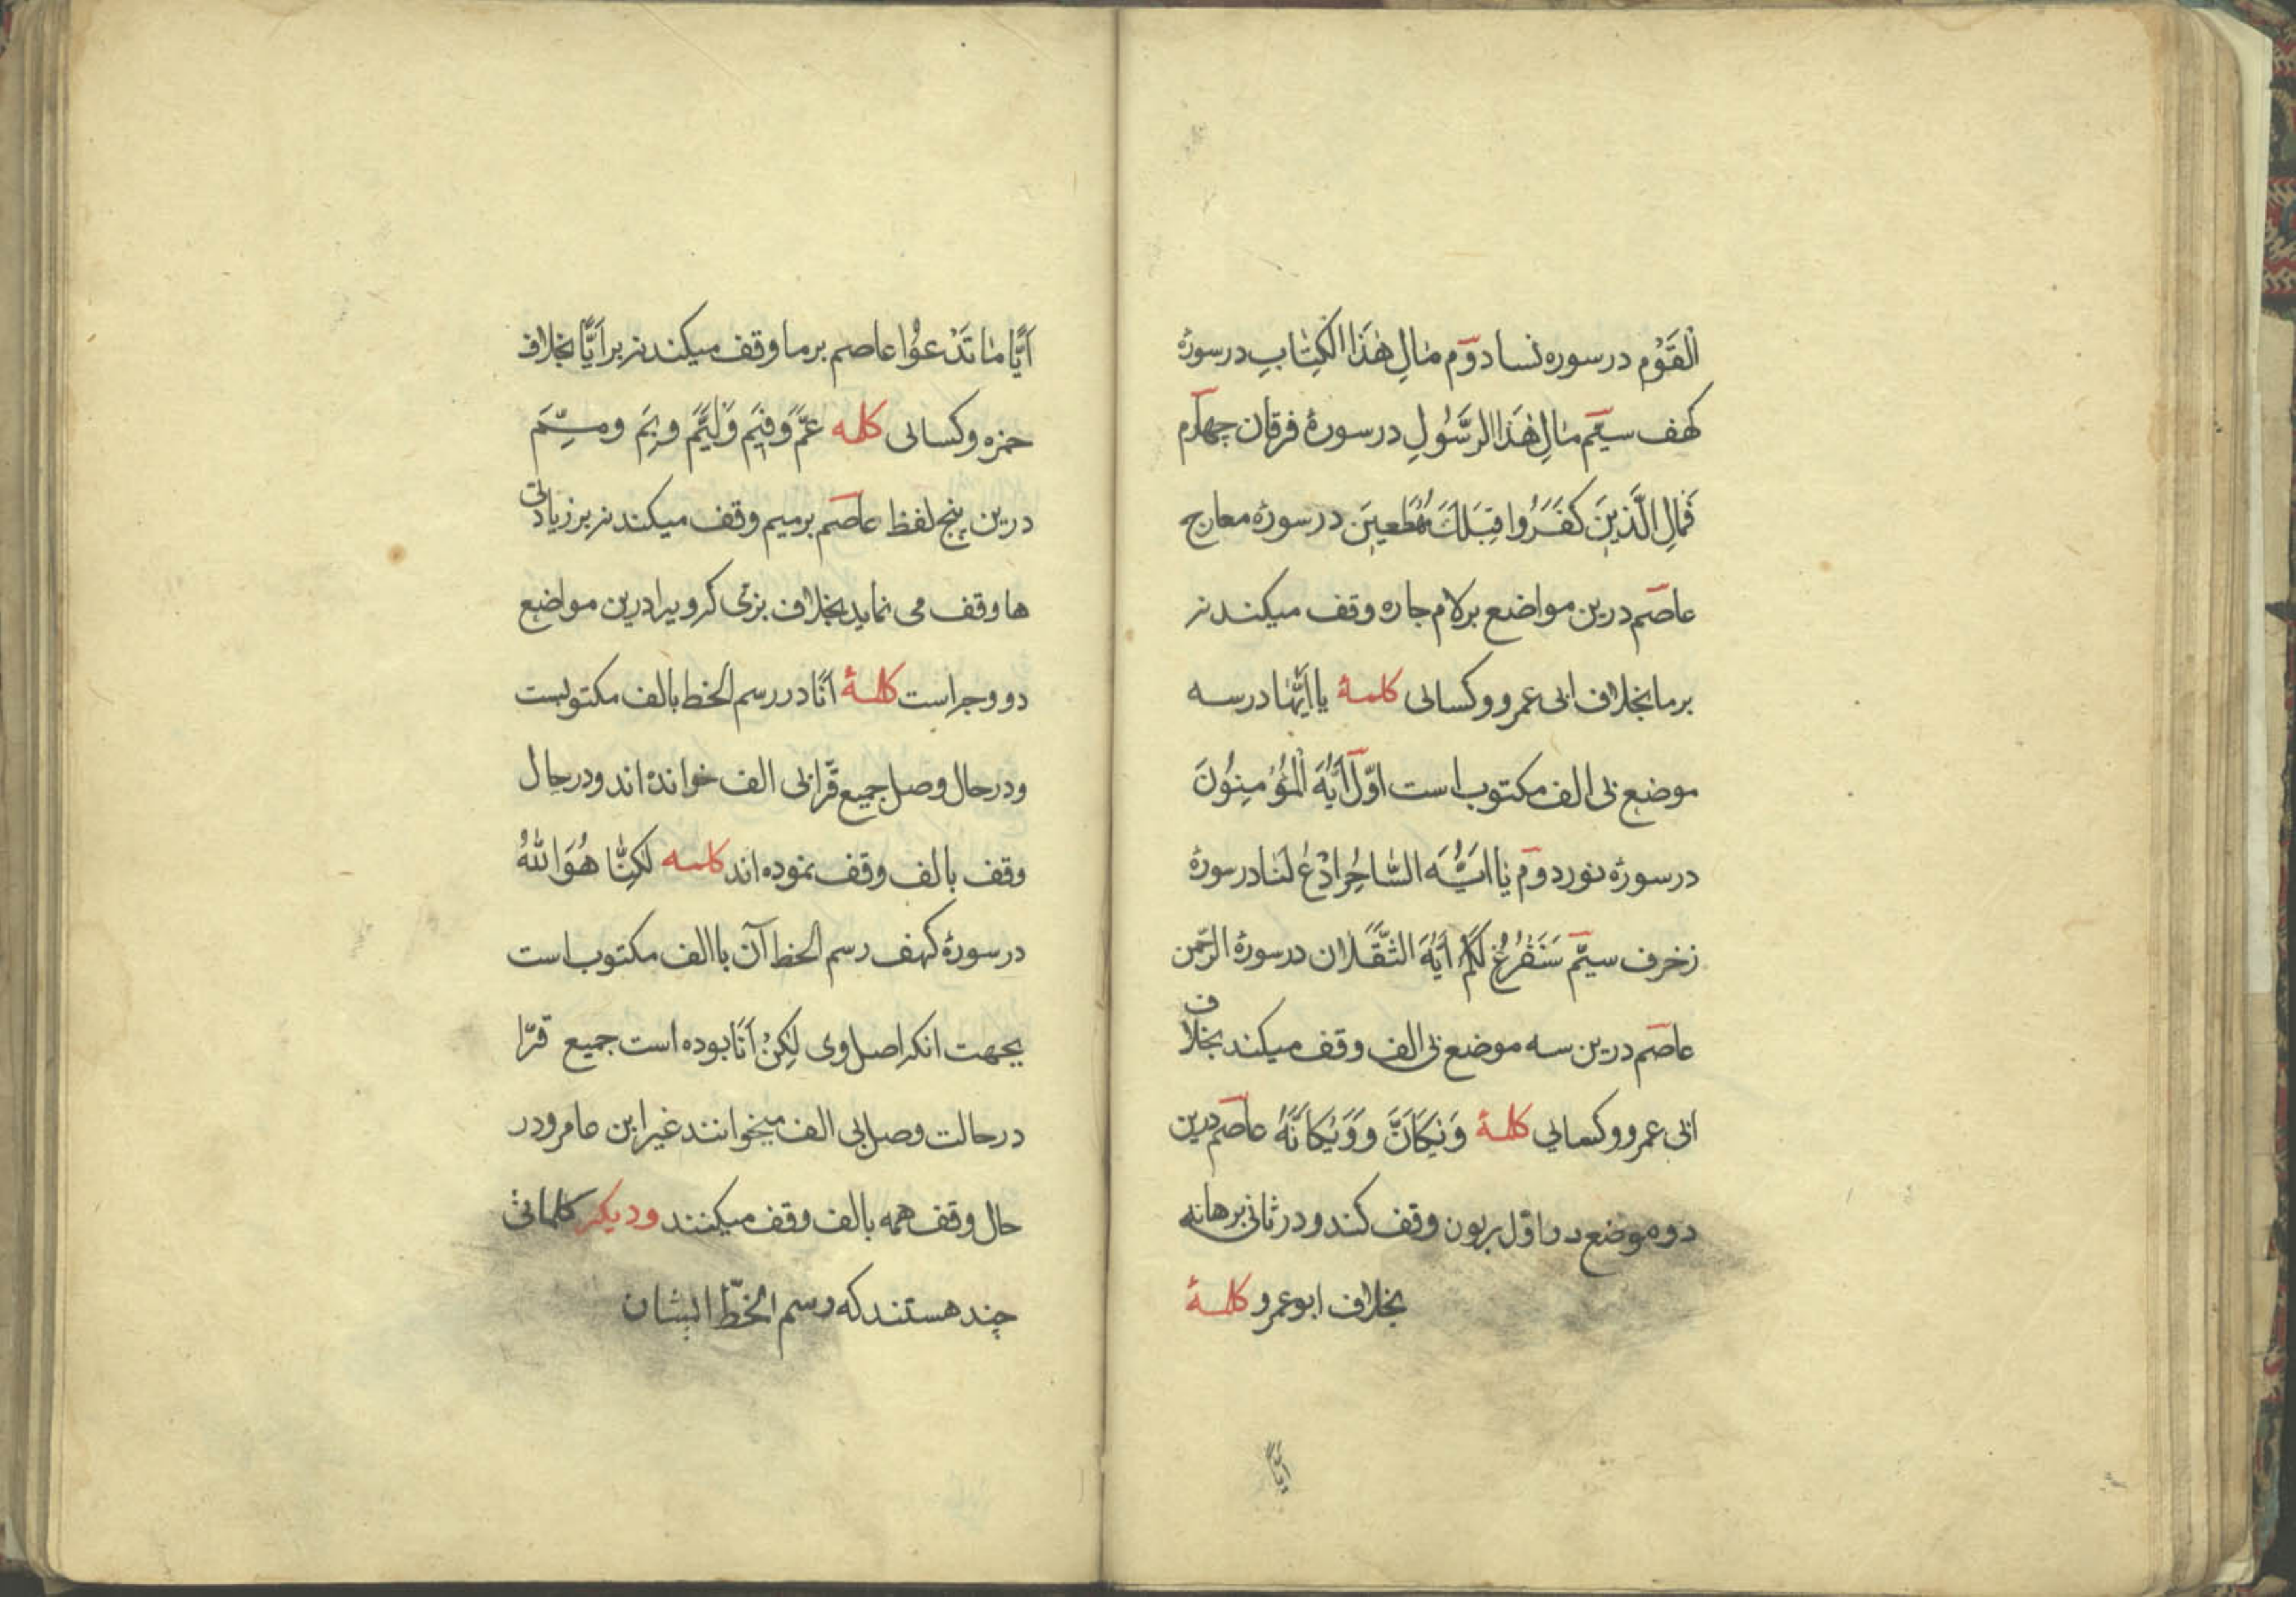 الْقَوْمِ در سوره نسا دوّم مٰالِ هٰذَا الْكِتٰابِ در سورهٔ
كهف سيّم مٰالِ هٰذَا الرَّسُولِ در سورهٔ فرقان چهارم
فَمٰالِ الَّذِينَ كَفَرُوا قِبَلَكَ مُهْطِعِينَ در سورهٔ معارج
عاصم درين مواضع بر لام جاره وقف ميكند نه
بر ما بخلاف ابى عمرو و كسائى كلمهٔ يا اَيُّهٰا در سه
موضع بى الف مكتوب است اوّل اَيُّهَ الْمُؤْمِنُونَ
در سورهٔ نور دوّم يٰا اَيُّهَ السّٰاحِرُ ادْعُ لَنٰا در سورهٔ
زخرف سيّم سَنَفْرُغُ لَكُمْ اَيُّهَ الثَّقَلٰانِ در سورهٔ الرّحمن
عاصم درين سه موضع بى الف وقف ميكند بخلاف
ابى عمرو و كسايى كلمهٔ وَيْكَاَنَّ و وَيْكَاَنَّهُ عاصم درين
دوه موضع در اوّل بر نون وقف كند و در ثانى بر هانه
بخلاف ابو عمرو كلمهٔ
اَيًّا
اَيًّا مٰا تَدْعُوا عاصم بر ما وقف ميكند نه بر اَيًّا بخلاف
حمزه و كسائى كلمه عَمَّ وَ فِيمَ وَ لِمَ وَ بِمَ وَ مِمَّ
درين پنج لفظ عاصم بر ميم وقف ميكند نه بر زيادتى
ها وقف مى نمايد بخلاف بزّى كه ويرا درين مواضع
دو وجه است كلمهٔ اَنَا در رسم الخط بالف مكتوبست
و در حال وصل جميع قرّا بى الف خوانده اند و در حال
وقف بالف وقف نموده اند كلمه لٰكِنَّا هُوَ اللّٰهُ
در سورهٔ كهف رسم الخط آن با الف مكتوب است
بجهت انكه اصل وى لٰكِنْ اَنَا بوده است جميع قرّا
در حالت وصل بى الف ميخوانند غير ابن عامر و در
حال وقف همه بالف وقف ميكنند و ديكر كلماتى
چند هستند كه رسم الخطّ ايشان